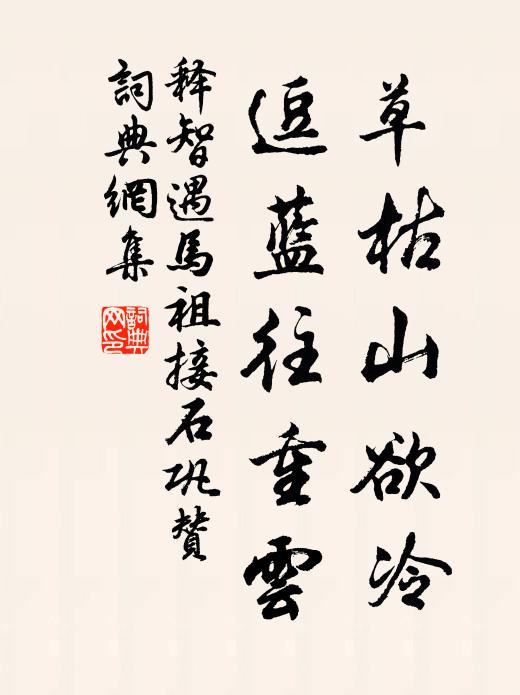 草枯山欲冷
逗藍往重雲
释智遇馬祖接石巩贊
詞典網集
詞典网印